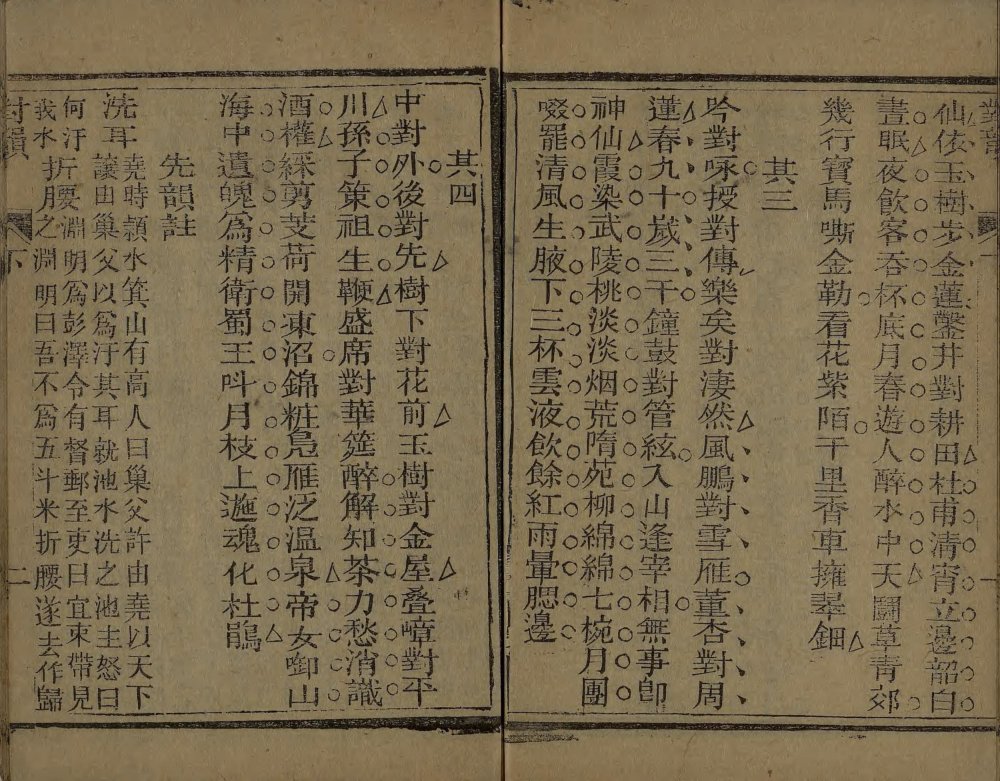 仙侶玉樹步金蓮鑿井對耕田杜甫清宵立邊韶白
晝眠夜飲客吞杯底月春遊人醉水中天鬪草青郊
幾行寶馬嘶金勒看花紫陌千里香車擁翠鈿
其三
吟對咏授對傳樂矣對淒然風鵬對雪雁董杏對周
蓮春九十歲三千鐘鼓對管絃入山逢宰相無事卽
神仙霞染武陵桃淡淡烟荒隋苑柳綿綿七椀月團
啜罷清風生腋下三杯雲液飲餘紅雨暈腮邊
其四
中對外後對先樹下對花前玉樹對金屋叠嶂對平
川孫子策祖生鞭盛席對華筵醉解知茶力愁消識
酒權綵剪芰荷開東沼錦粧鳧雁泛温泉帝女啣山
海中遺魄爲精衛蜀王呌月枝上遊魂化杜鵑
先韻註
洗耳 堯時潁水箕山有高人曰巢父許由堯以天下
讓由巢父以爲汙其耳就池水洗之池主怒曰
何汙我水 折腰 淵明爲彭澤令有督郵至吏曰宜束帶見
之淵明曰吾不爲五斗米折腰遂去作歸
對韻
下
二